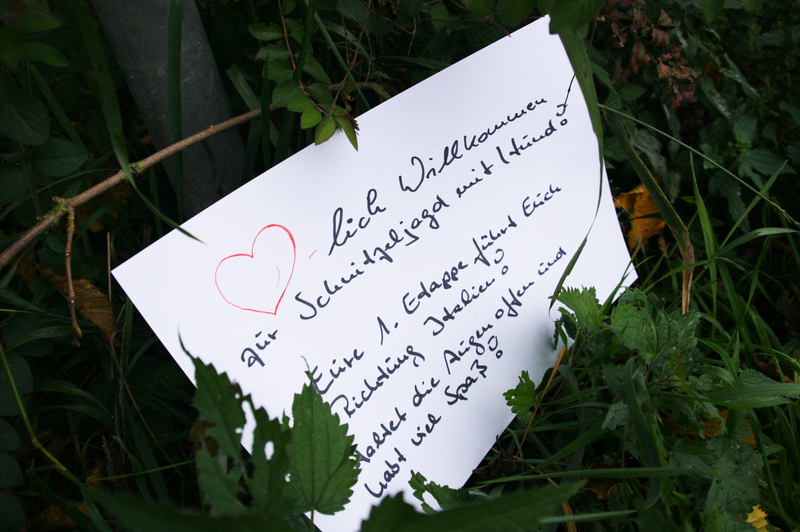 -lich Willkommen
zur Schnitzeljagd mit Hund!
Eure 1. Etappe führt Euch
Richtung Italien!
Haltet die Augen offen und
habt viel Spaß!